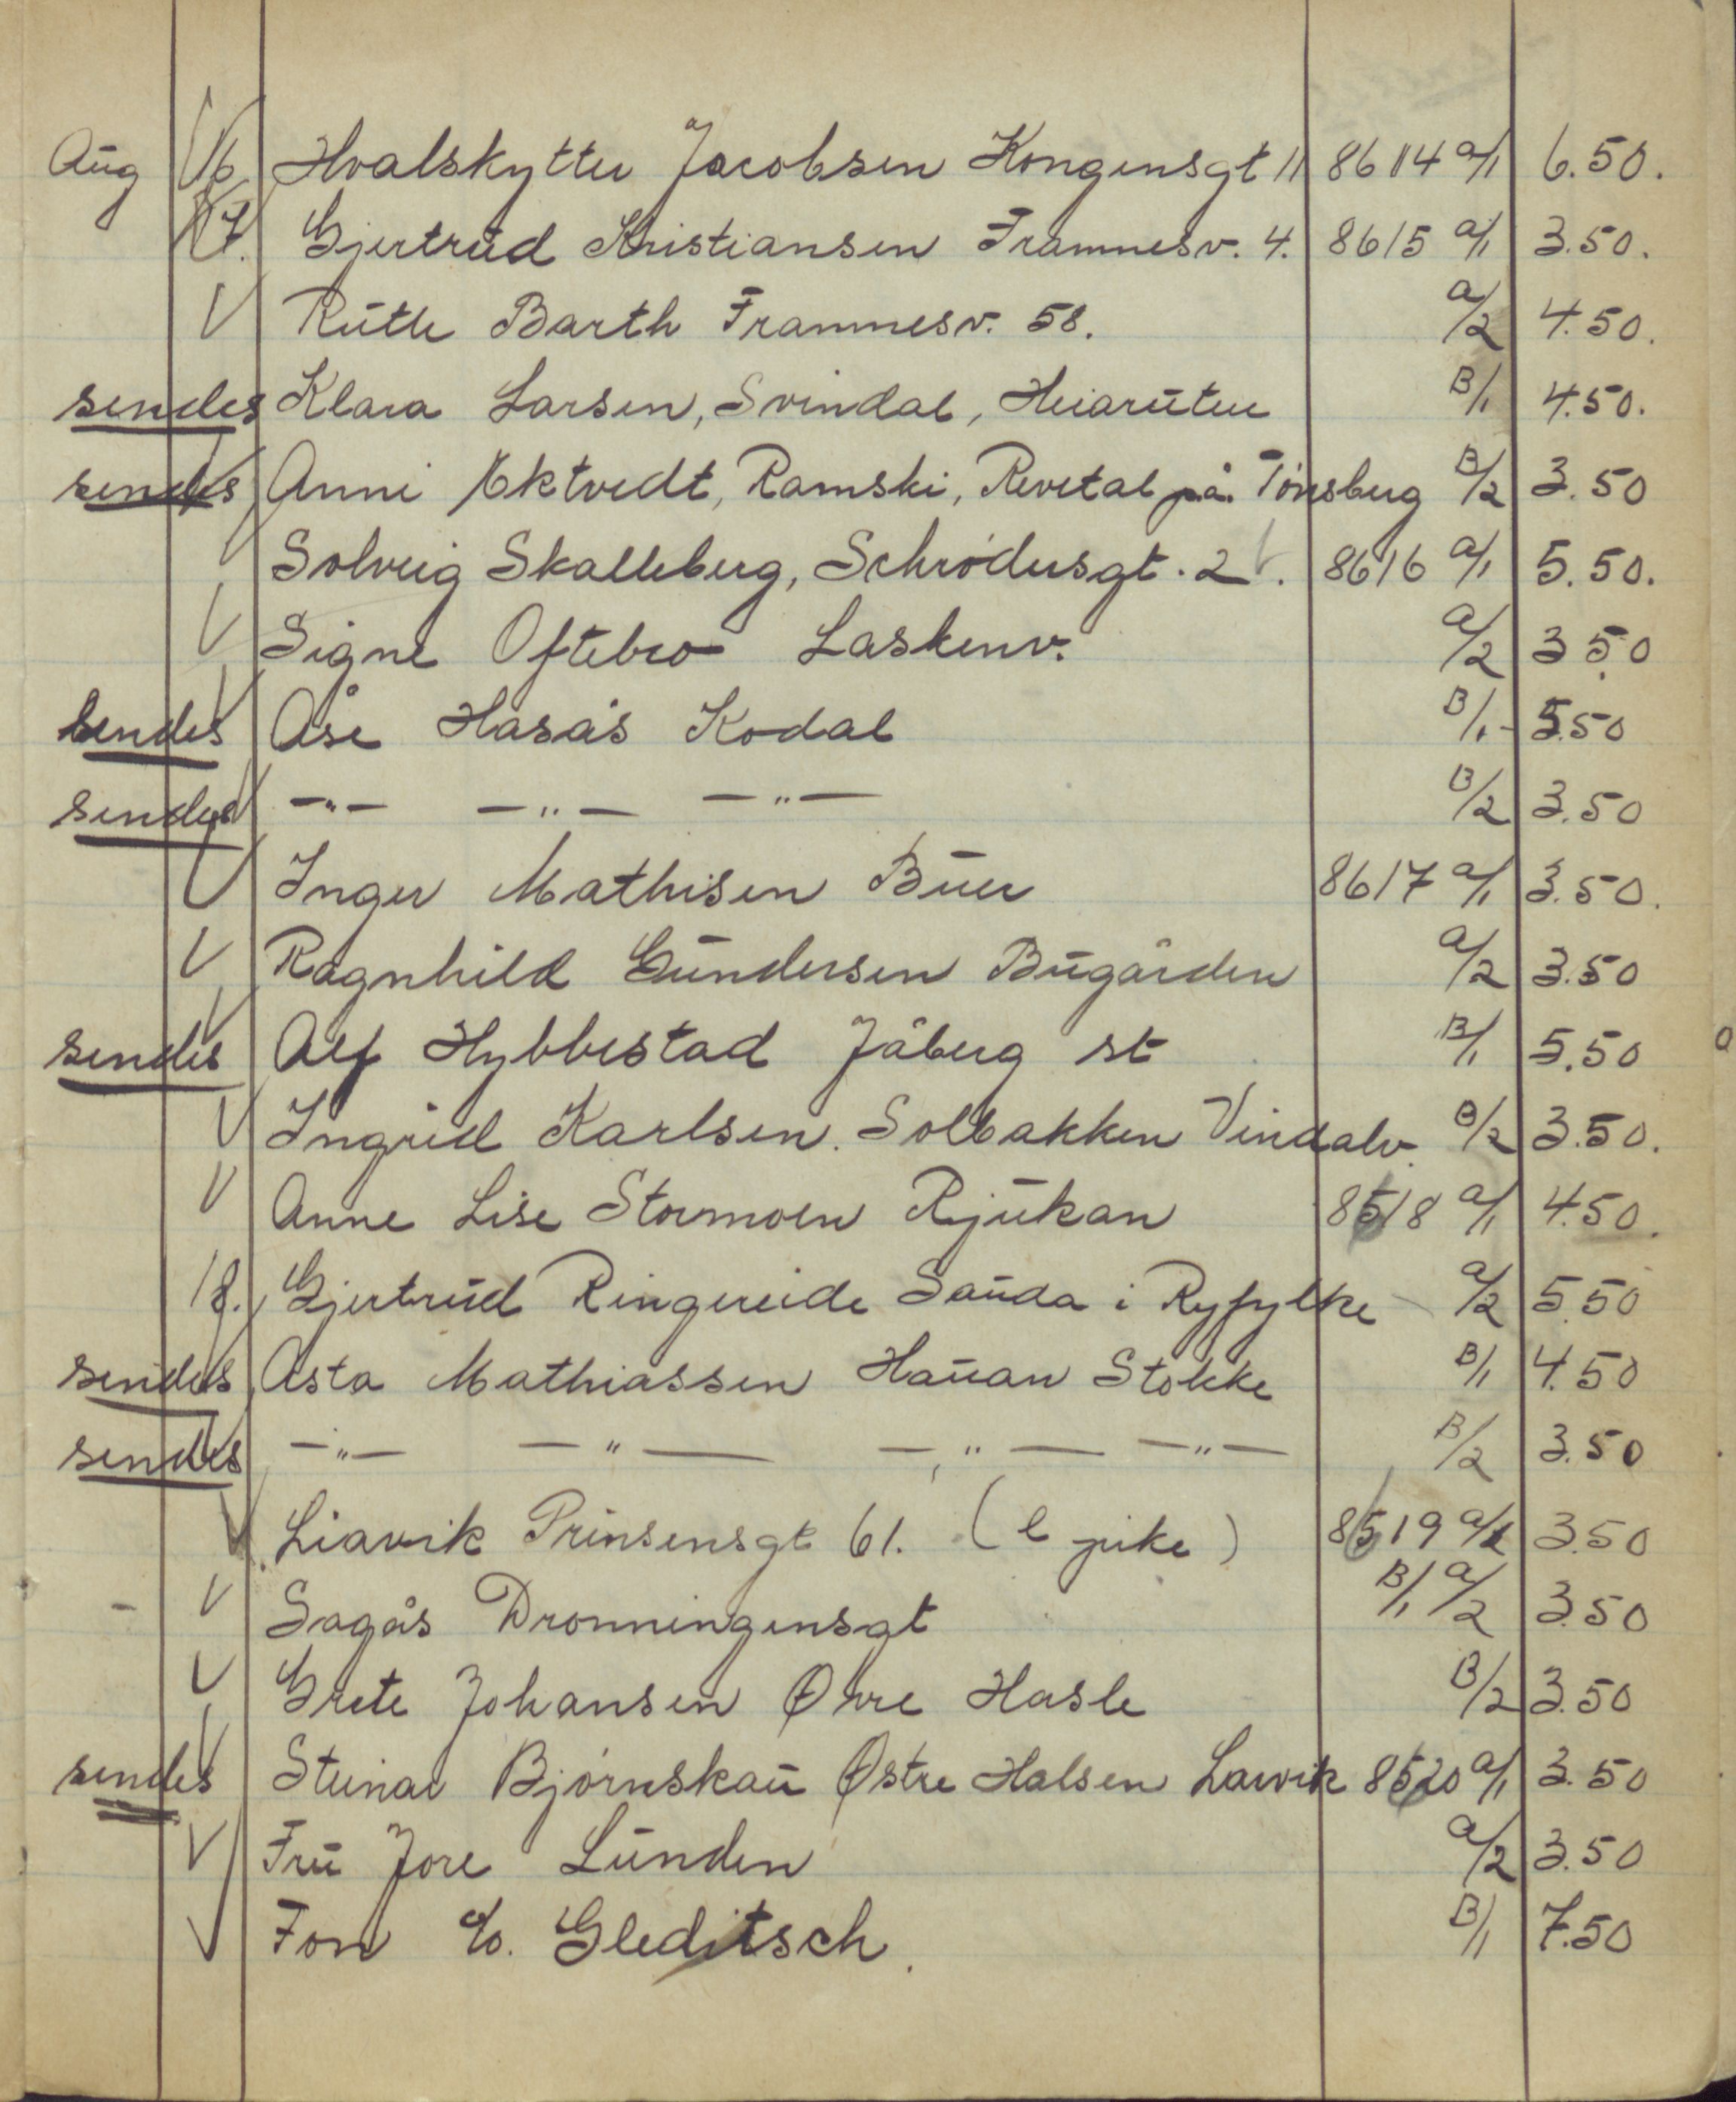 Aug 16 Hvalskytter Jacobsen Kongensgt 11 8614 a/1 6.50.
17. Gjertrud Kristiansen Framnesv. 4. 8615 a/1 3.50.
Ruth Barth Framnesv. 58. a/2 4.50.
sendes Klara Larsen, Svindal, Heiaruten B/1 4.50.
sendes Anni Ektvedt, Ramski, Revetal på. Tønsberg B/2 3.50
Solveig Skalleberg, Schrødersgt. 2. 8616 a/1 5.50.
Signe Oftebro Laskenv. a/2 3.50
sendes Åse Hasås Kodal B/1 - 5.50
sendes -"- -"- -"- B/2 3.50
Inger Mathisen Buer 8617 a/1 3.50.
Ragnhild Gundersen Bugården a/2 3.50
sendes Alf Hybbestad Jåberg st B/1 5.50
Ingrid Karlsen. Solbakken Vindalv. B/2 3.50.
Anne Lise Stormoen Rjukan 8618 a/1 4.50.
18. Gjertrud Ringereide Sauda i Ryfylke a/2 5.50
sendes Asta Mathiassen Hauan Stokke B/1 4.50
sendes -"- -"- -"- -"- B/2 3.50
Liavik Prinsensgt 61. (l pike) 8619 a/1 3.50
Sagås Dronningensgt B/1 a/2 3.50
Grete Johansen Øvre Hasle B/2 3.50
sendes Steinar Bjørnskau Østre Halsen Larvik 8620 a/1 3.50
Fru Jore Lunden a/2 3.50
Fon c/o. Gleditsch. B/1 7.50